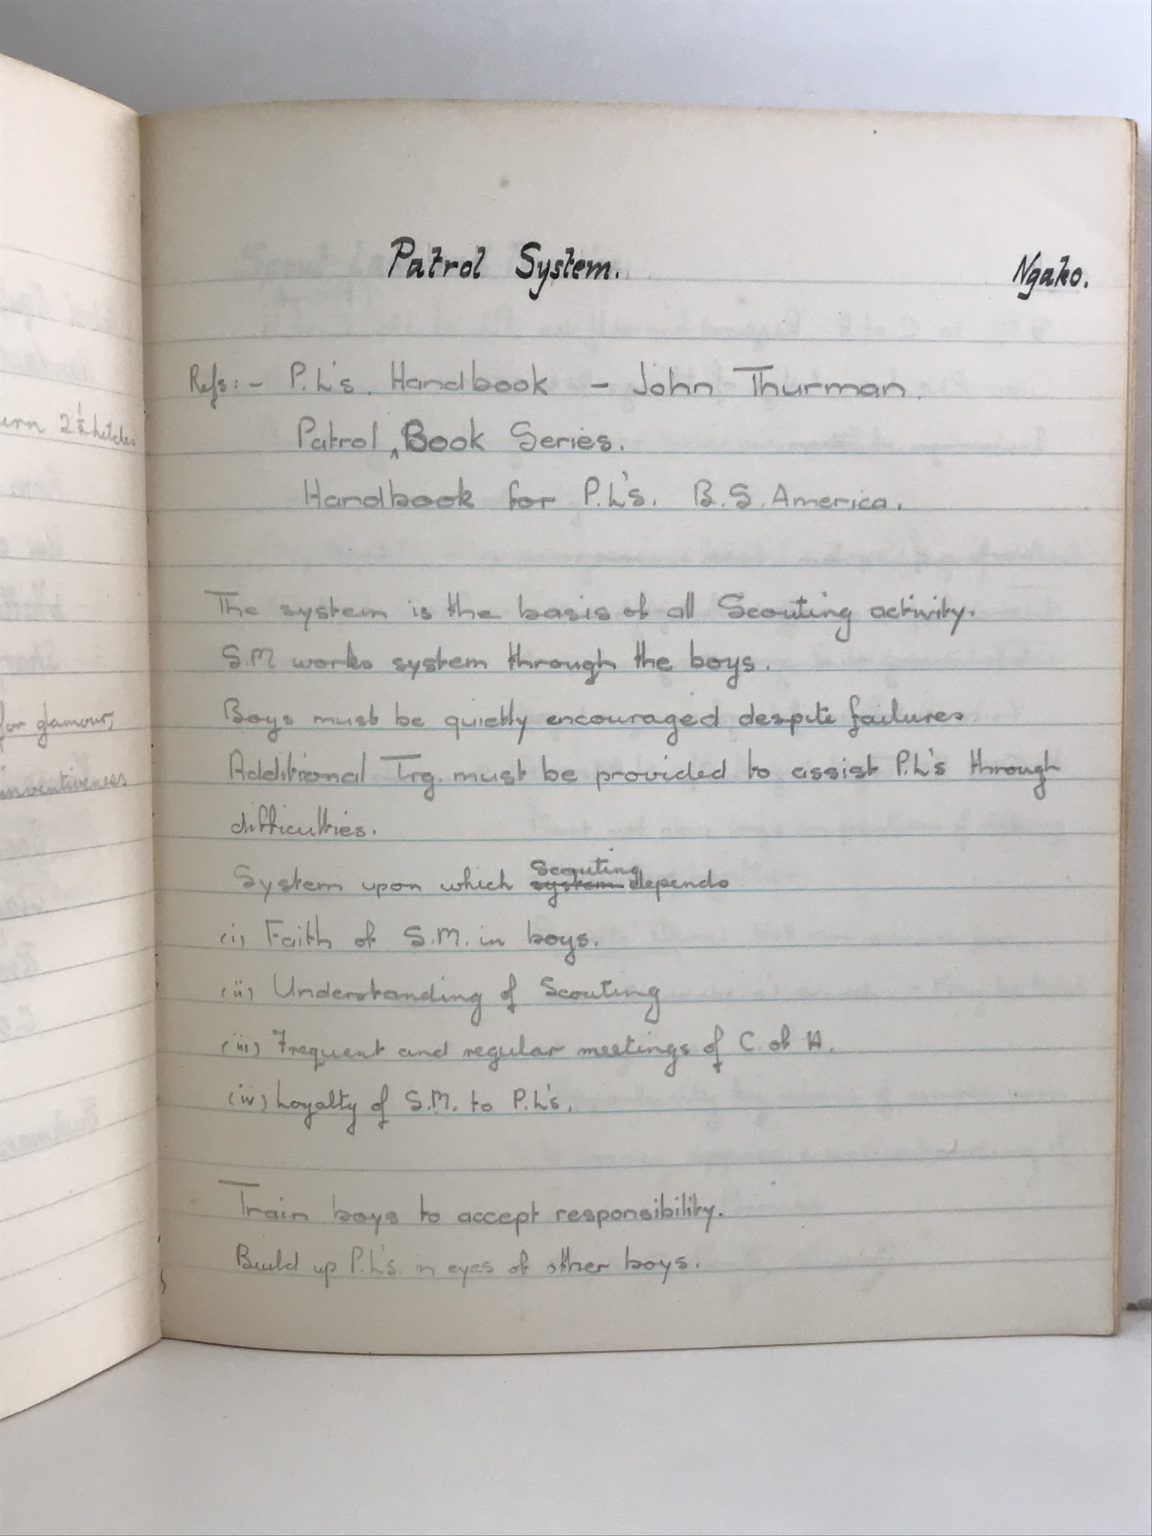 urn 2½ hitches
for glamour,
inventiveness
Patrol System. Ngako.
Refs:- P.L's. Handbook - John Thurman.
Patrol ‸Book Series.
Handbook for P.L's. B.S. America.
The system is the basis of all Scouting activity.
S.M works system through the boys.
Boys must be quietly encouraged despite failures
Additional Trg. must be provided to assist P.L's through
difficulties.
System upon which system Scouting depends
(i) Faith of S.M. in boys.
(ii) Understanding of Scouting
(iii) Frequent and regular meetings of C. of H.
(iv) Loyalty of S.M. to P.L's.
Train boys to accept responsibility.
Build up P.L's. in eyes of other boys.